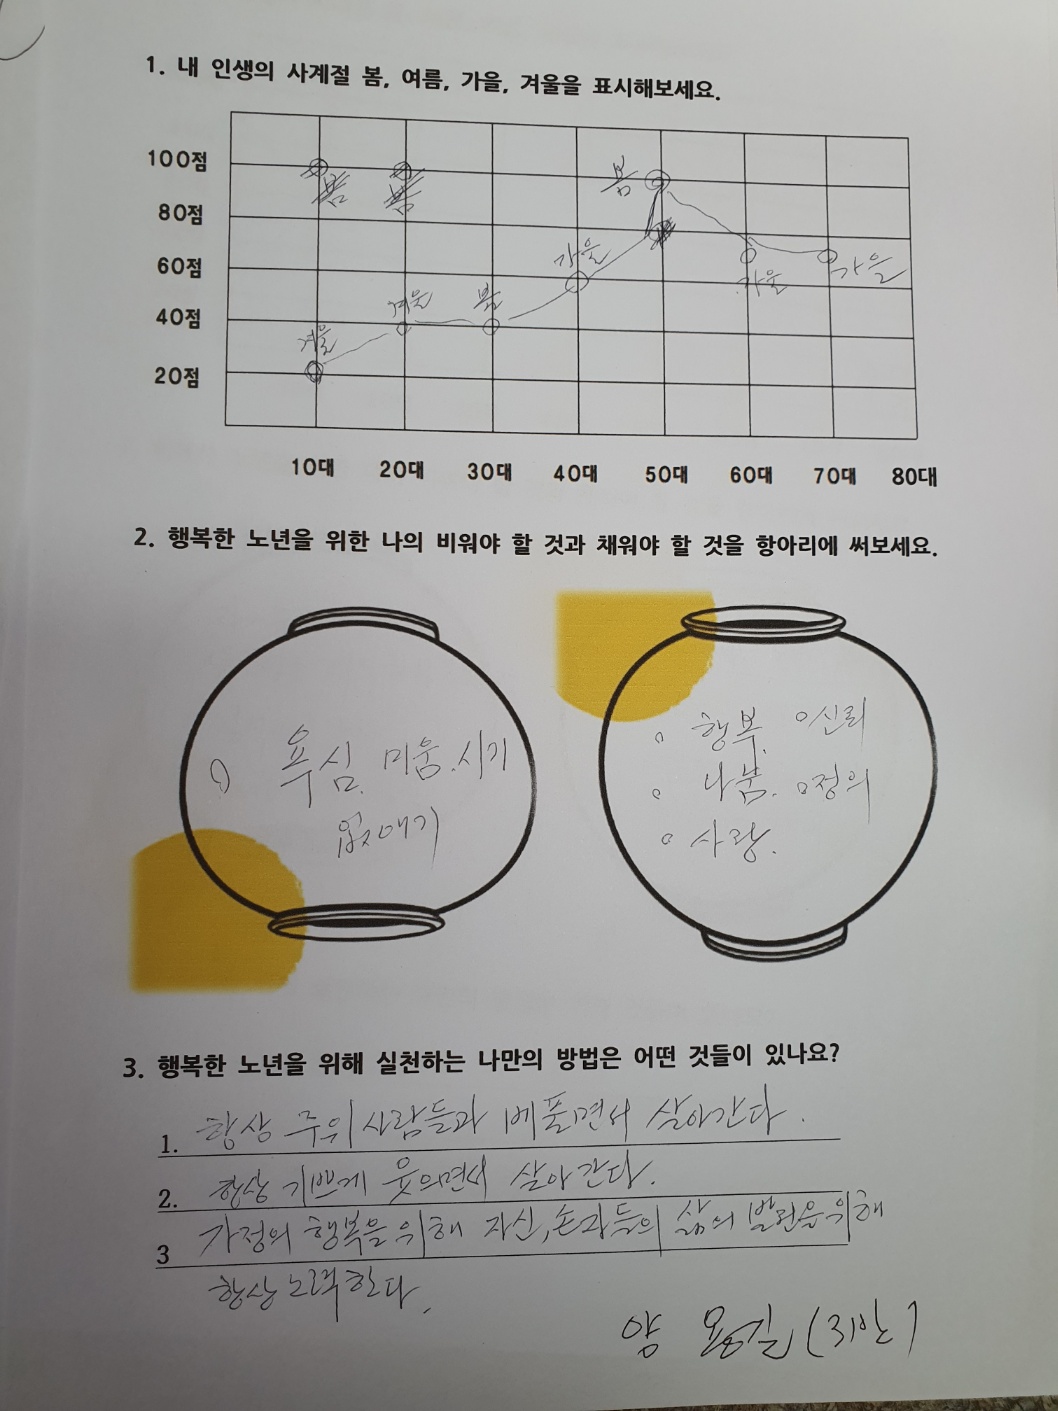 1. 내 인생의 사계절 봄, 여름, 가을, 겨울을 표시해보세요.
100점
80점
60점
40점
20점
봄
봄
봄
가을
가을
가을
겨울
봄
겨울
10대 20대 30대 40대 50대 60대 70대 80대
2. 행복한 노년을 위한 나의 비워야 할 것과 채워야 할 것을 항아리에 써보세요.
욕심. 미움. 시기
없애기
행복. 신뢰
나눔. 정의
사랑.
3. 행복한 노년을 위해 실천하는 나만의 방법은 어떤 것들이 있나요?
1. 항상 주위 사람들과 베풀면서 살아간다.
2. 항상 기쁘게 웃으면서 살아간다.
3 가정의 행복을 위해 자신, 손자들의 삶의 발전을 위해
항상 노력한다.
양 (3반)